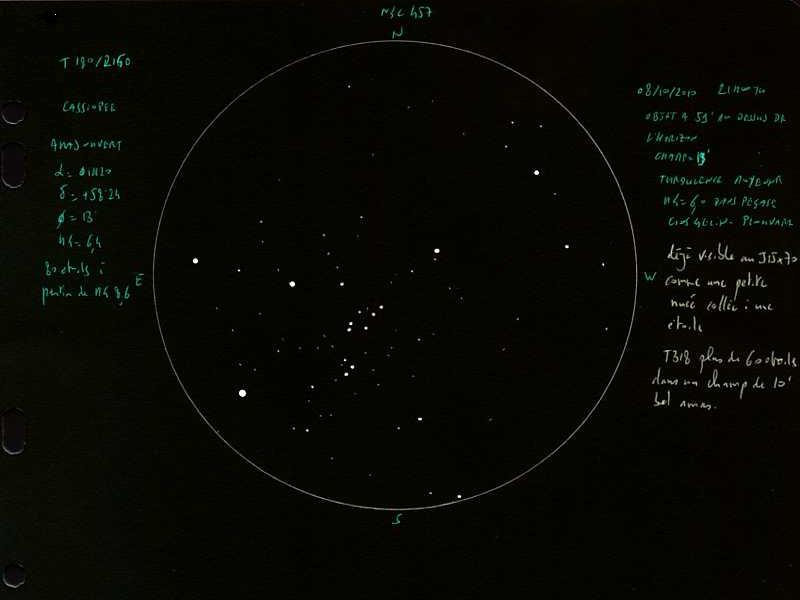 NGC 457
N
T 180/2160
CASSIOPEE
AMAS OUVERT
α = 01H20
δ = +58°24
φ = 13'
MG = 6,4
80 étoiles à
partir de MG 8,6
E
W
S
08/10/2010 21H
OBJET A 59° AU DESSUS DE
L'HORIZON
CHAMP
TURBULENCE MOYENNE
MG = 6 DANS PEGASE
CIEL
déjà visible au J15x70
comme une petite
nuée collée à une
étoile
T318 plus de 60 étoiles
dans un champ de 10'
bel amas.